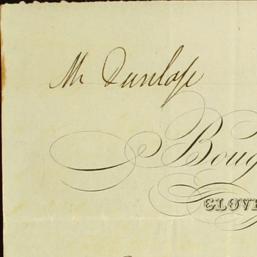 Mr Dunlap
Boug
GLOVE